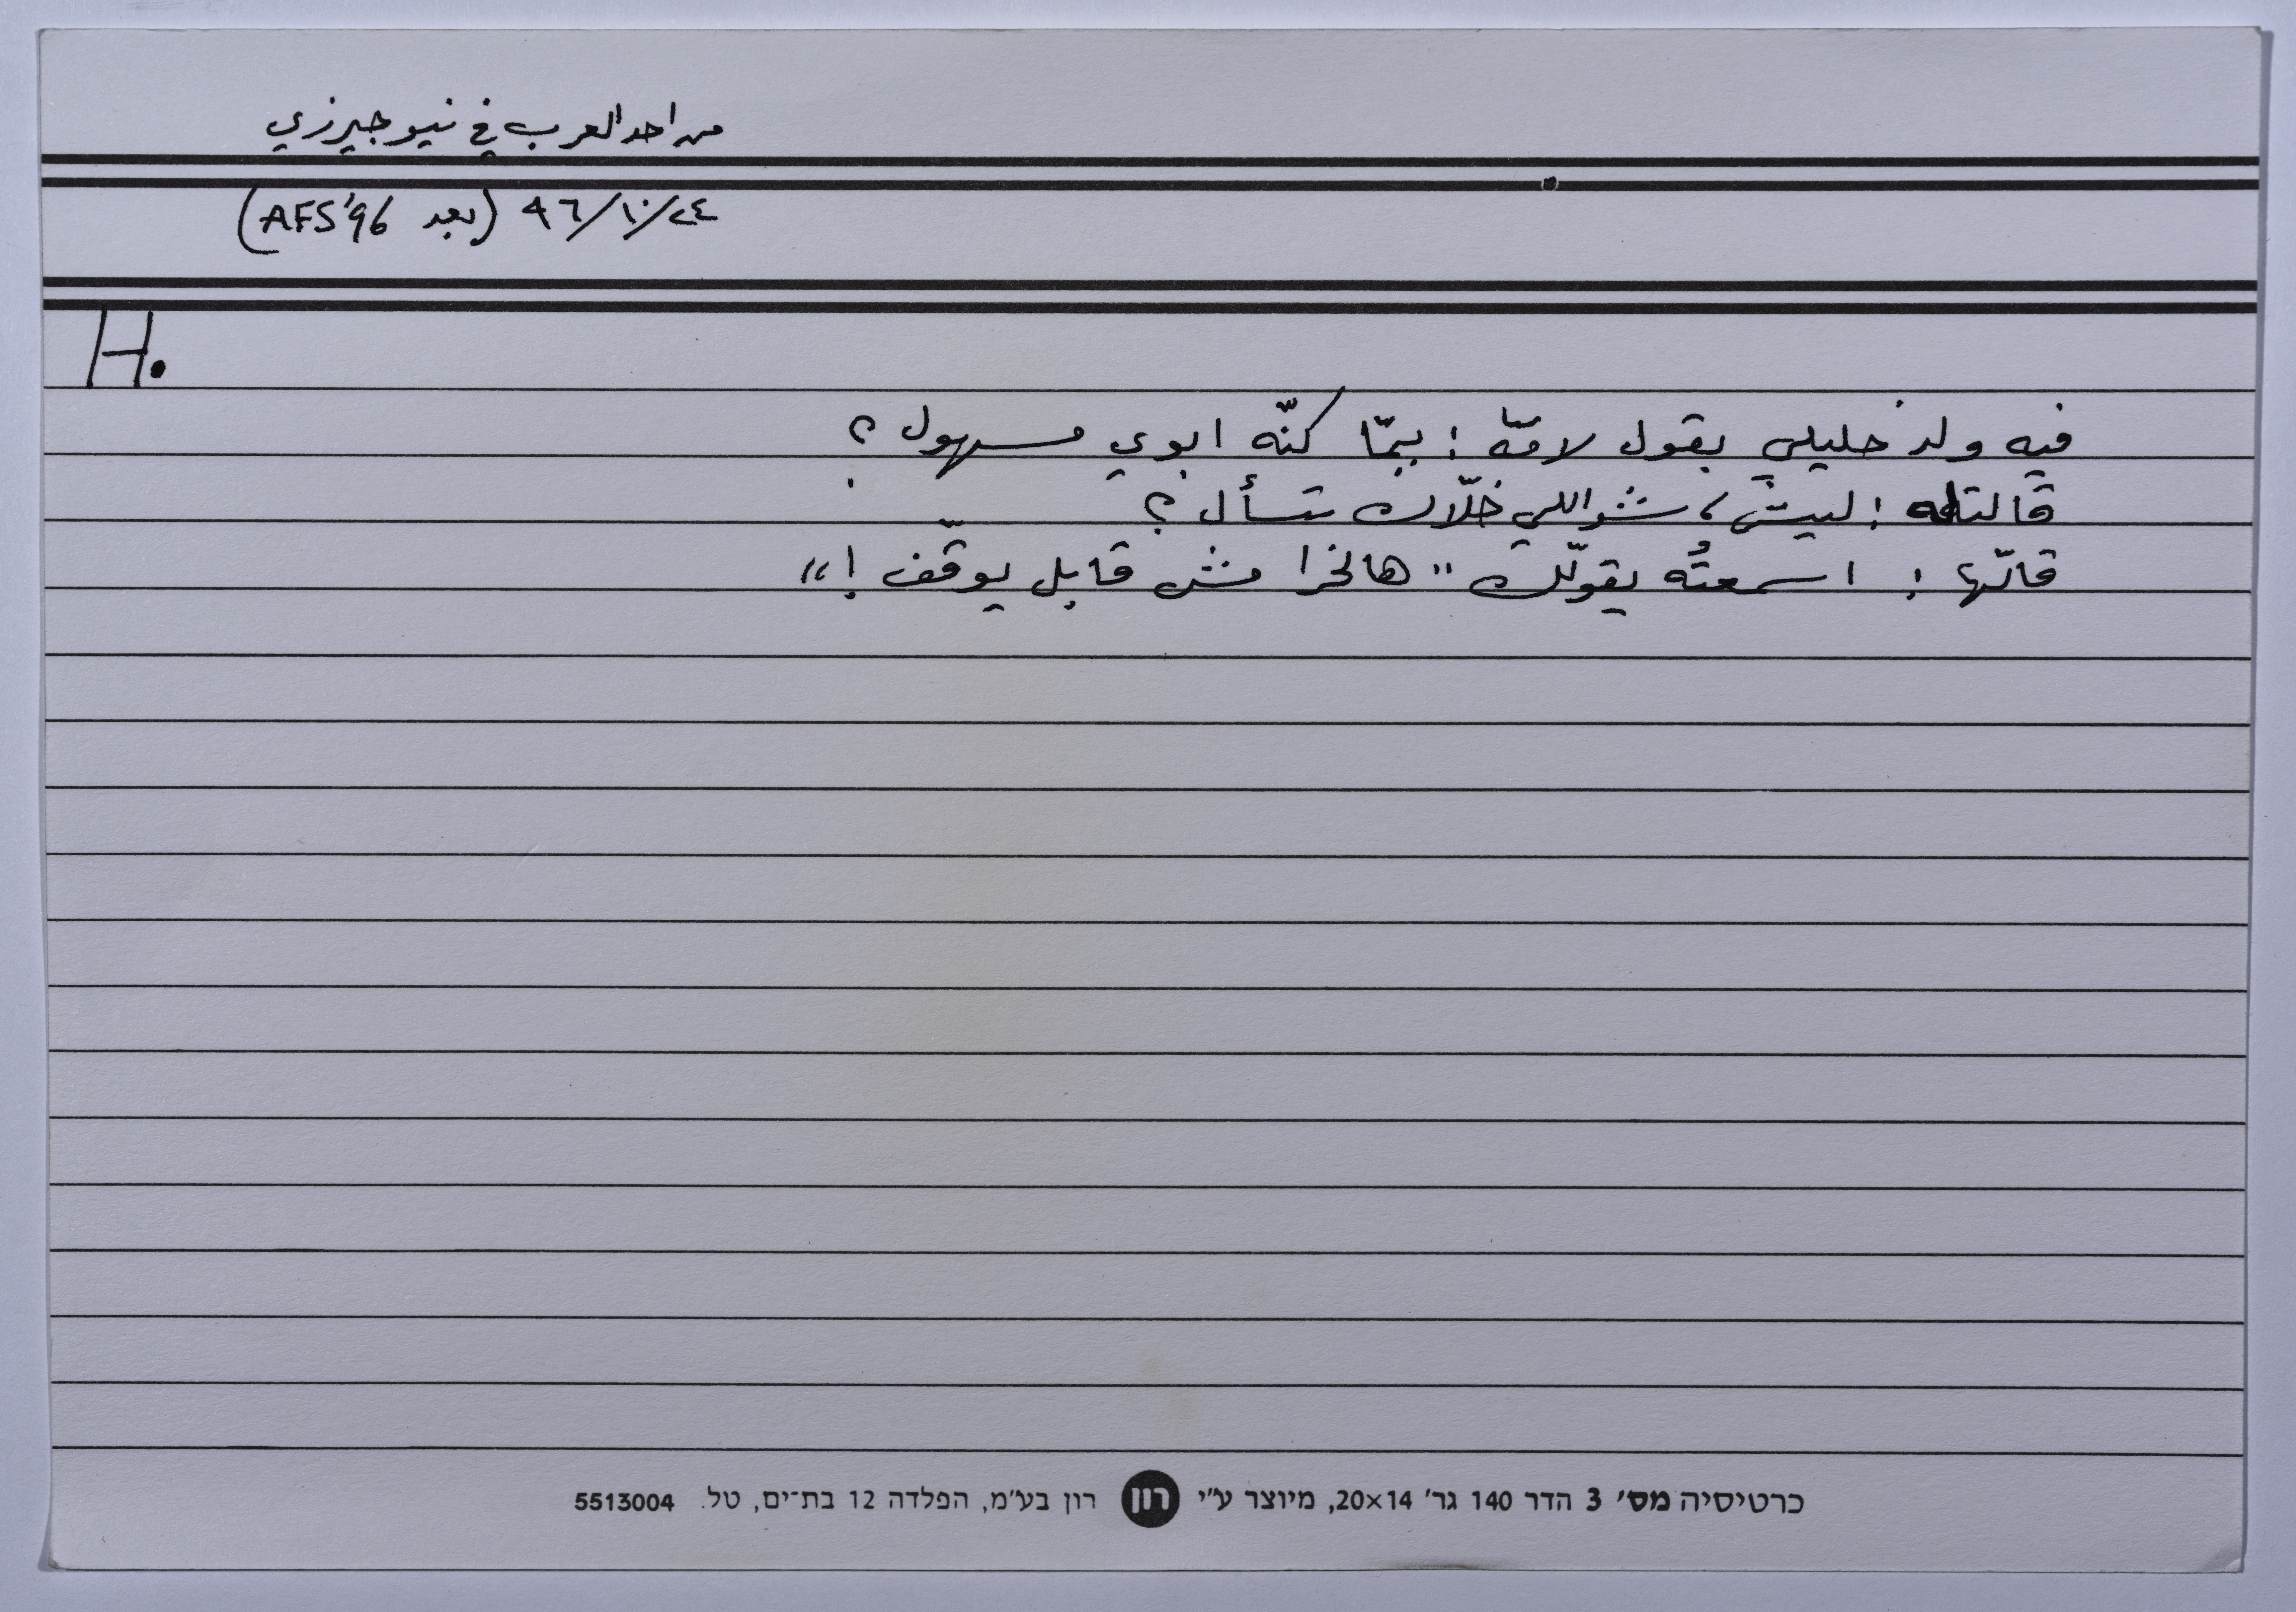 من احد العرب في نيو جيرزي
٢٤/١٠/٩٦ (بعد AFS '96)
H.
فيه ولد خليلي بقول لامّه : يمّا كنّه ابوي مسهول ؟
قالتله : ليش، شو اللي خلّاك تسأل ؟
قالّها : اسمعتُه يقولّك "هالخرا مش قابل يوقّف !"
כרטיסיה מס' 3 הדר 140 גר' 20×14, מיוצר ע"י רון רון בע"מ, הפלדה 12 בת־ים, טל. 5513004